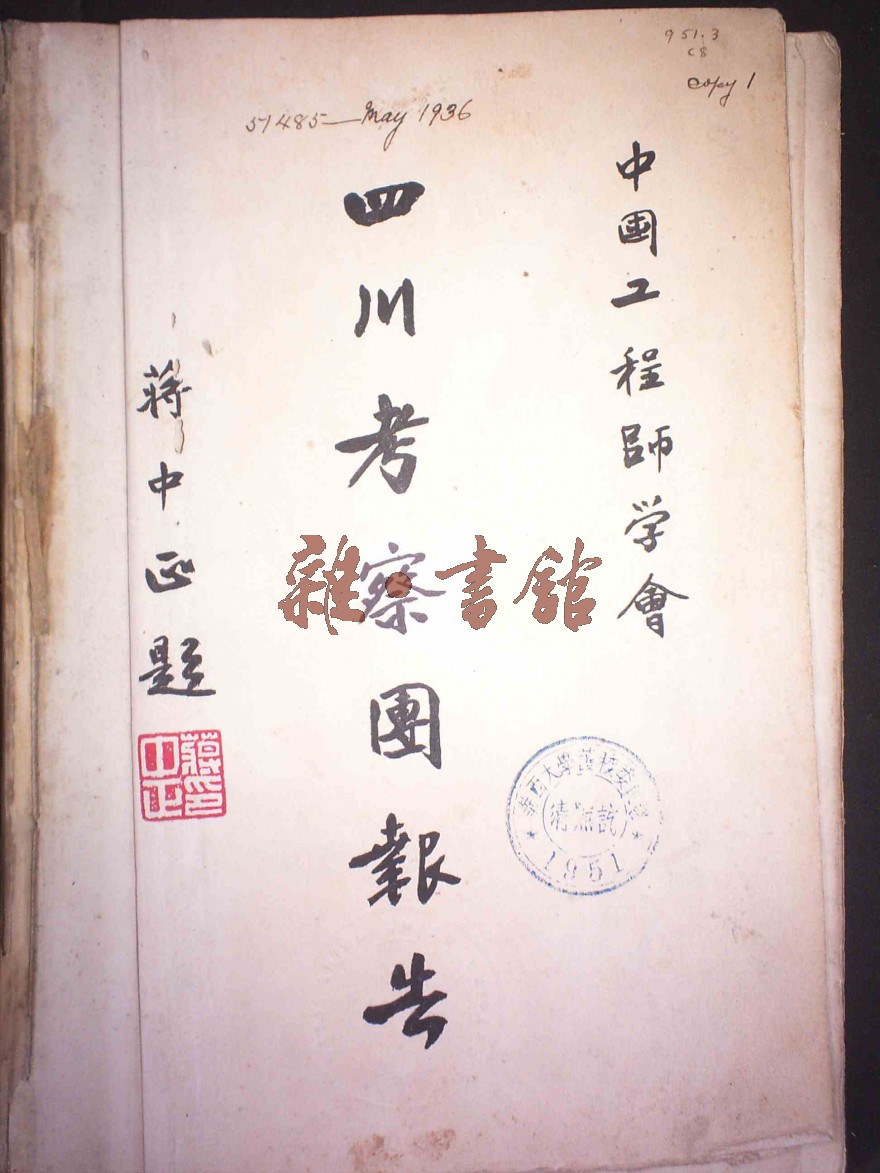 951.3
C8
copy 1
51485—May 1936
中國工程師学會
四川考察團報告
蔣中正題
蔣中正印
雜書館
華西大學
清點訖
1951